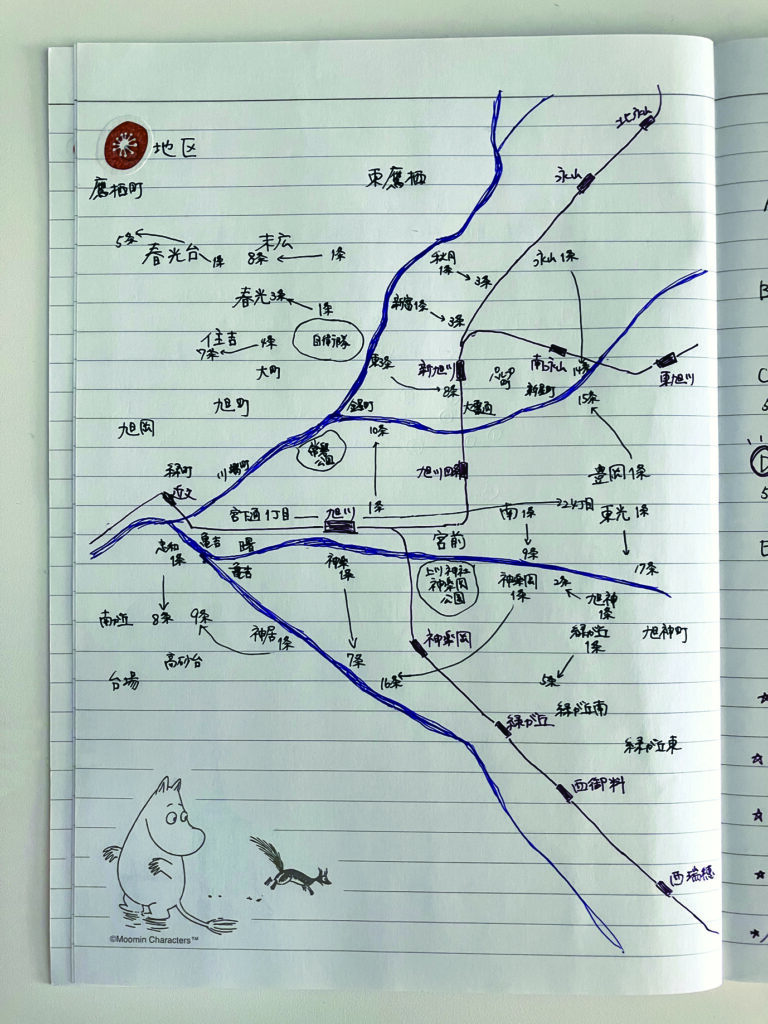 地区
鷹栖町
東鷹栖
北永山
永山
5条
春光台
1条
末広
8条
1条
秋月
1条
3条
永山1条
春光3条
1条
新富1条
3条
自衛隊
住吉
4条
7条
大町
東3条
8条
新旭川
パルプ町
南永山
14条
東旭川
旭町
金星町
大雪通
新星町
15条
旭岡
10条
常磐公園
緑町
近文
川端町
旭川四条
豊岡1条
宮下通1丁目
旭川
1条
24丁目
南1条
東光1条
忠和
1条
亀吉
曙
亀吉
神楽
1条
宮前
9条
17条
上川神社
神楽岡
公園
神楽岡
1条
2条
旭神
1条
南が丘
8条
9条
神居1条
高砂台
7条
16条
神楽岡
緑が丘
1条
旭神町
台場
5条
緑が丘南
緑が丘
緑が丘東
西御料
西瑞穂
©Moomin Characters™